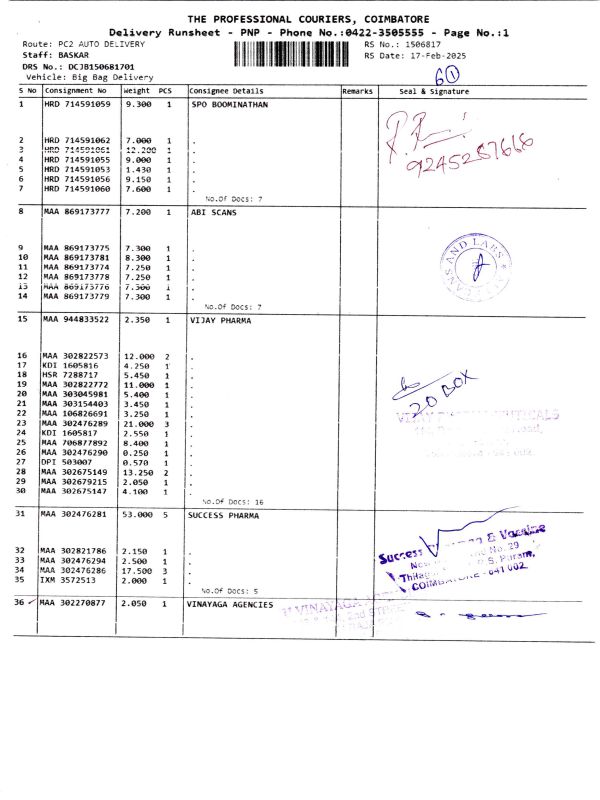 THE PROFESSIONAL COURIERS, COIMBATORE
Delivery Runsheet - PNP - Phone No.:0422-3505555 - Page No.:1
Route: PC2 AUTO DELIVERY RS No.: 1506817
Staff: BASKAR RS Date: 17-Feb-2025
DRS No.: DCJB150681701
Vehicle: Big Bag Delivery
S No Consignment No Weight PCS Consignee Details Remarks Seal & Signature
1 HRD 714591059 9.300 1 SPO BOOMINATHAN
2 HRD 714591062 7.000 1 .
3 HRD 714591061 12.200 1 .
4 HRD 714591055 9.000 1 .
5 HRD 714591053 1.430 1 .
6 HRD 714591056 9.150 1 .
7 HRD 714591060 7.600 1 .
No.Of Docs: 7
9245287666
8 MAA 869173777 7.200 1 ABI SCANS
9 MAA 869173775 7.300 1 .
10 MAA 869173781 8.300 1 .
11 MAA 869173774 7.250 1 .
12 MAA 869173778 7.250 1 .
13 MAA 869173776 7.300 1 .
14 MAA 869173779 7.300 1 .
No.Of Docs: 7
AND LABS
15 MAA 944833522 2.350 1 VIJAY PHARMA
16 MAA 302822573 12.000 2 .
17 KDI 1605816 4.250 1 .
18 HSR 7288717 5.450 1 .
19 MAA 302822772 11.000 1 .
20 MAA 303045981 5.400 1 .
21 MAA 303154403 3.450 1 .
22 MAA 106826691 3.250 1 .
23 MAA 302476289 21.000 3 .
24 KDI 1605817 2.550 1 .
25 MAA 706877892 8.400 1 .
26 MAA 302476290 0.250 1 .
27 DPI 503007 0.570 1 .
28 MAA 302675149 13.250 2 .
29 MAA 302679215 2.050 1 .
30 MAA 302675147 4.100 1 .
No.Of Docs: 16
20 BOX
31 MAA 302476281 53.000 5 SUCCESS PHARMA
32 MAA 302821786 2.150 1 .
33 MAA 302476294 2.500 1 .
34 MAA 302476286 17.500 3 .
35 IXM 3572513 2.000 1 .
No.Of Docs: 5
Success & Vaccine
No. 29
S. Puram,
641 002
36 MAA 302270877 2.050 1 VINAYAGA AGENCIES
VINAYAGA